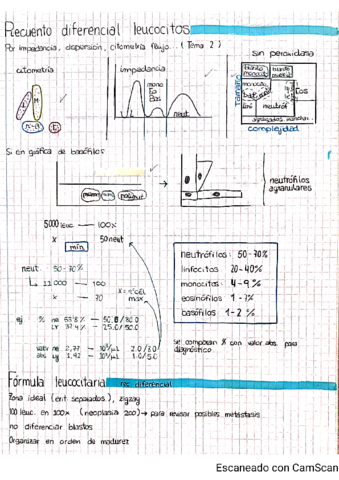 Recuento diferencial leucocitos
Por impedancia, dispersión, citometría flujo. (Tema 2)
citometría
impedancia
sin peroxidaria
L
M
N-A
E
mono
Eo
Bas
neut
Tamaño
blasto
monocito
blasto
monocito
Eos
linf
neutróf
complejidad
Si en gráfica de basófilos
neutrófilos
agranulares
5000 leuc — 100%
x 50 neut
min
neutrófilos: 50-70%
linfocitos 20-40%
monocitos: 4-9%
eosinófilos 1-3%
basófilos 1-2%
neut 50-70%
11000 — 100
x — 70
x = nºcel max
ej % ne 53'8% — 50.0/80.0
LY 37.4% — 25.0/50.0
valor ne 2,77 — 10³/µL 2.0/8.0
abs LY 1,92 — 10³/µL 1.0/5.0
se comparan % con valor abs. para
diagnóstico
Fórmula leucocitaria rec. diferencial
Zona ideal (erit separados), zigzag
100 leuc. en 100x (neoplasia 200) → para revisar posibles metástasis
no diferenciar blastos
Organizar en orden de madurez
Escaneado con CamScan